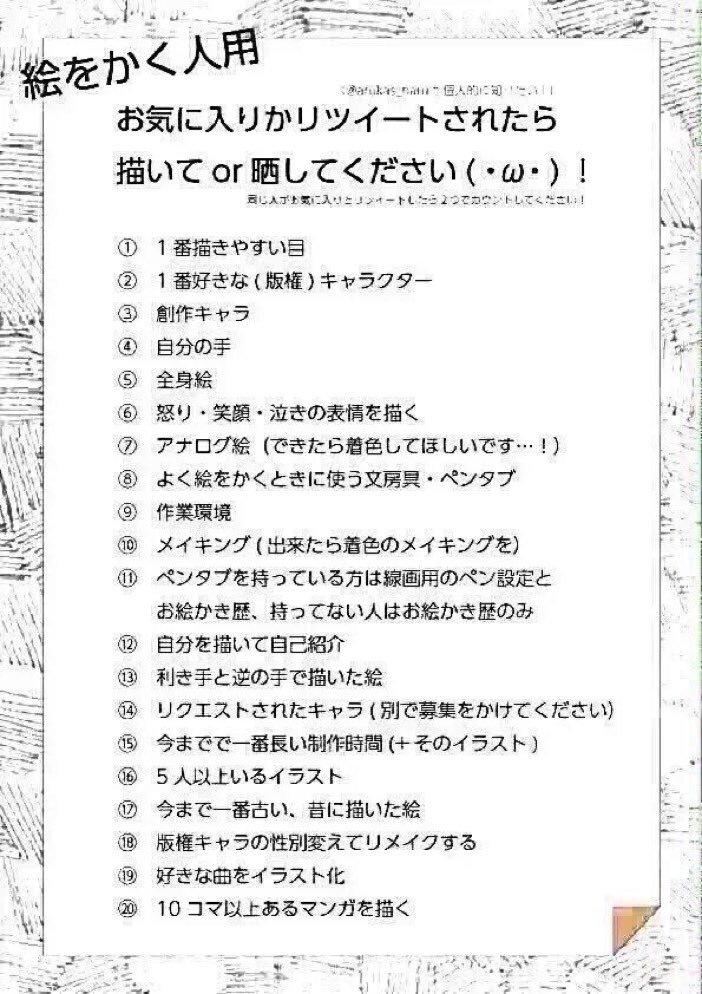 絵をかく人用
個人的に知りたい！！
お気に入りかリツイートされたら
描いて or 晒してください (・ω・) ！
同じ人がお気に入りとリツイートしたら２つでカウントしてください！
① 1 番描きやすい目
② 1 番好きな ( 版権 ) キャラクター
③ 創作キャラ
④ 自分の手
⑤ 全身絵
⑥ 怒り・笑顔・泣きの表情を描く
⑦ アナログ絵（できたら着色してほしいです…！）
⑧ よく絵をかくときに使う文房具・ペンタブ
⑨ 作業環境
⑩ メイキング ( 出来たら着色のメイキングを)
⑪ ペンタブを持っている方は線画用のペン設定と
お絵かき歴、持ってない人はお絵かき歴のみ
⑫ 自分を描いて自己紹介
⑬ 利き手と逆の手で描いた絵
⑭ リクエストされたキャラ ( 別で募集をかけてください)
⑮ 今までで一番長い制作時間 (+ そのイラスト )
⑯ 5 人以上いるイラスト
⑰ 今まで一番古い、昔に描いた絵
⑱ 版権キャラの性別変えてリメイクする
⑲ 好きな曲をイラスト化
⑳ 10 コマ以上あるマンガを描く